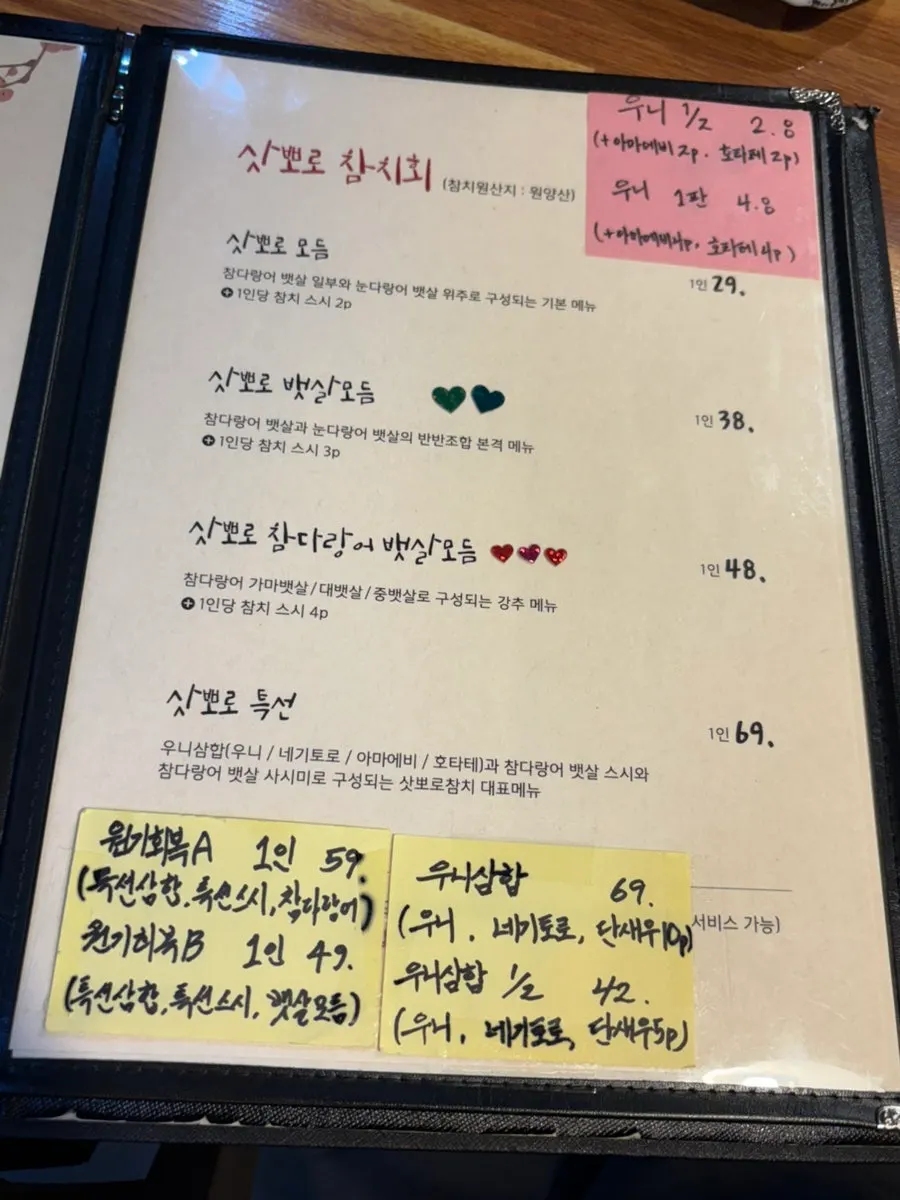 삿뽀로 참치회 (참치원산지 : 원양산)
우니 1/2 2.8
(+아마에비 2p. 호타테 2p)
우니 1판 4.8
(+아마에비 4p. 호타테 4p)
삿뽀로 모듬
참다랑어 뱃살 일부와 눈다랑어 뱃살 위주로 구성되는 기본 메뉴
+ 1인당 참치 스시 2p
1인 29.
삿뽀로 뱃살모듬
참다랑어 뱃살과 눈다랑어 뱃살의 반반조합 본격 메뉴
+ 1인당 참치 스시 3p
1인 38.
삿뽀로 참다랑어 뱃살모듬
참다랑어 가마뱃살/대뱃살/중뱃살로 구성되는 강추 메뉴
+ 1인당 참치 스시 4p
1인 48.
삿뽀로 특선
우니삼합(우니 / 네기토로 / 아마에비 / 호타테)과 참다랑어 뱃살 스시와
참다랑어 뱃살 사시미로 구성되는 삿뽀로참치 대표메뉴
1인 69.
원기회복A 1인 59.
(특선삼합, 특선스시, 참다랑어)
원기회복B 1인 49.
(특선삼합, 특선스시, 뱃살모듬)
우니삼합 69.
(우니, 네기토로, 단새우10p)
우니삼합 1/2 42.
(우니, 네기토로, 단새우5p)
서비스 가능)